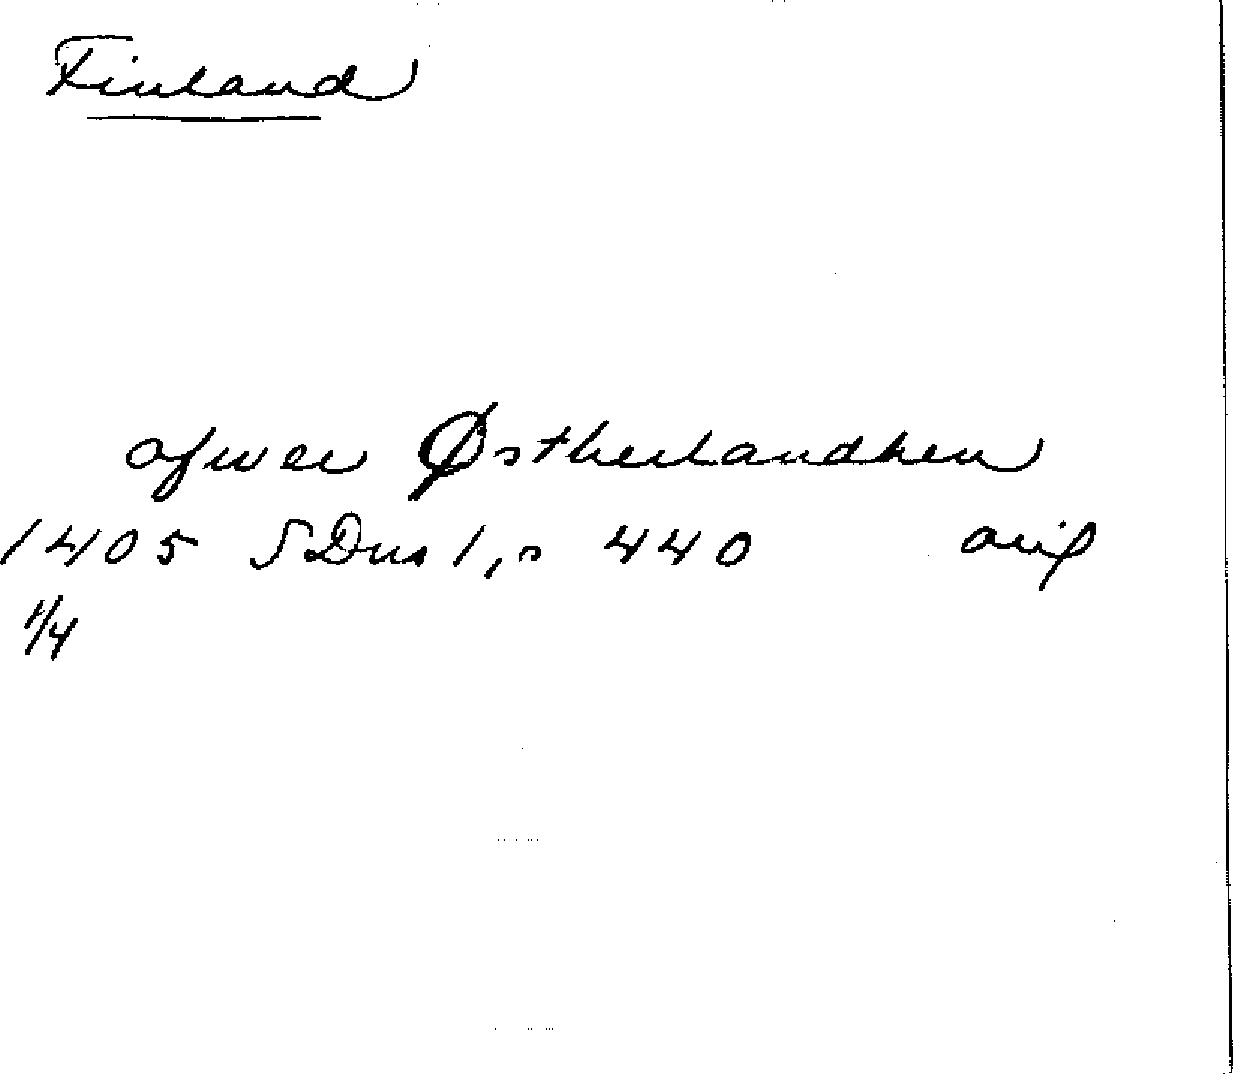 Finland
afwer Østherlandhen
1405 SDns 1, s 440 avip
1/4